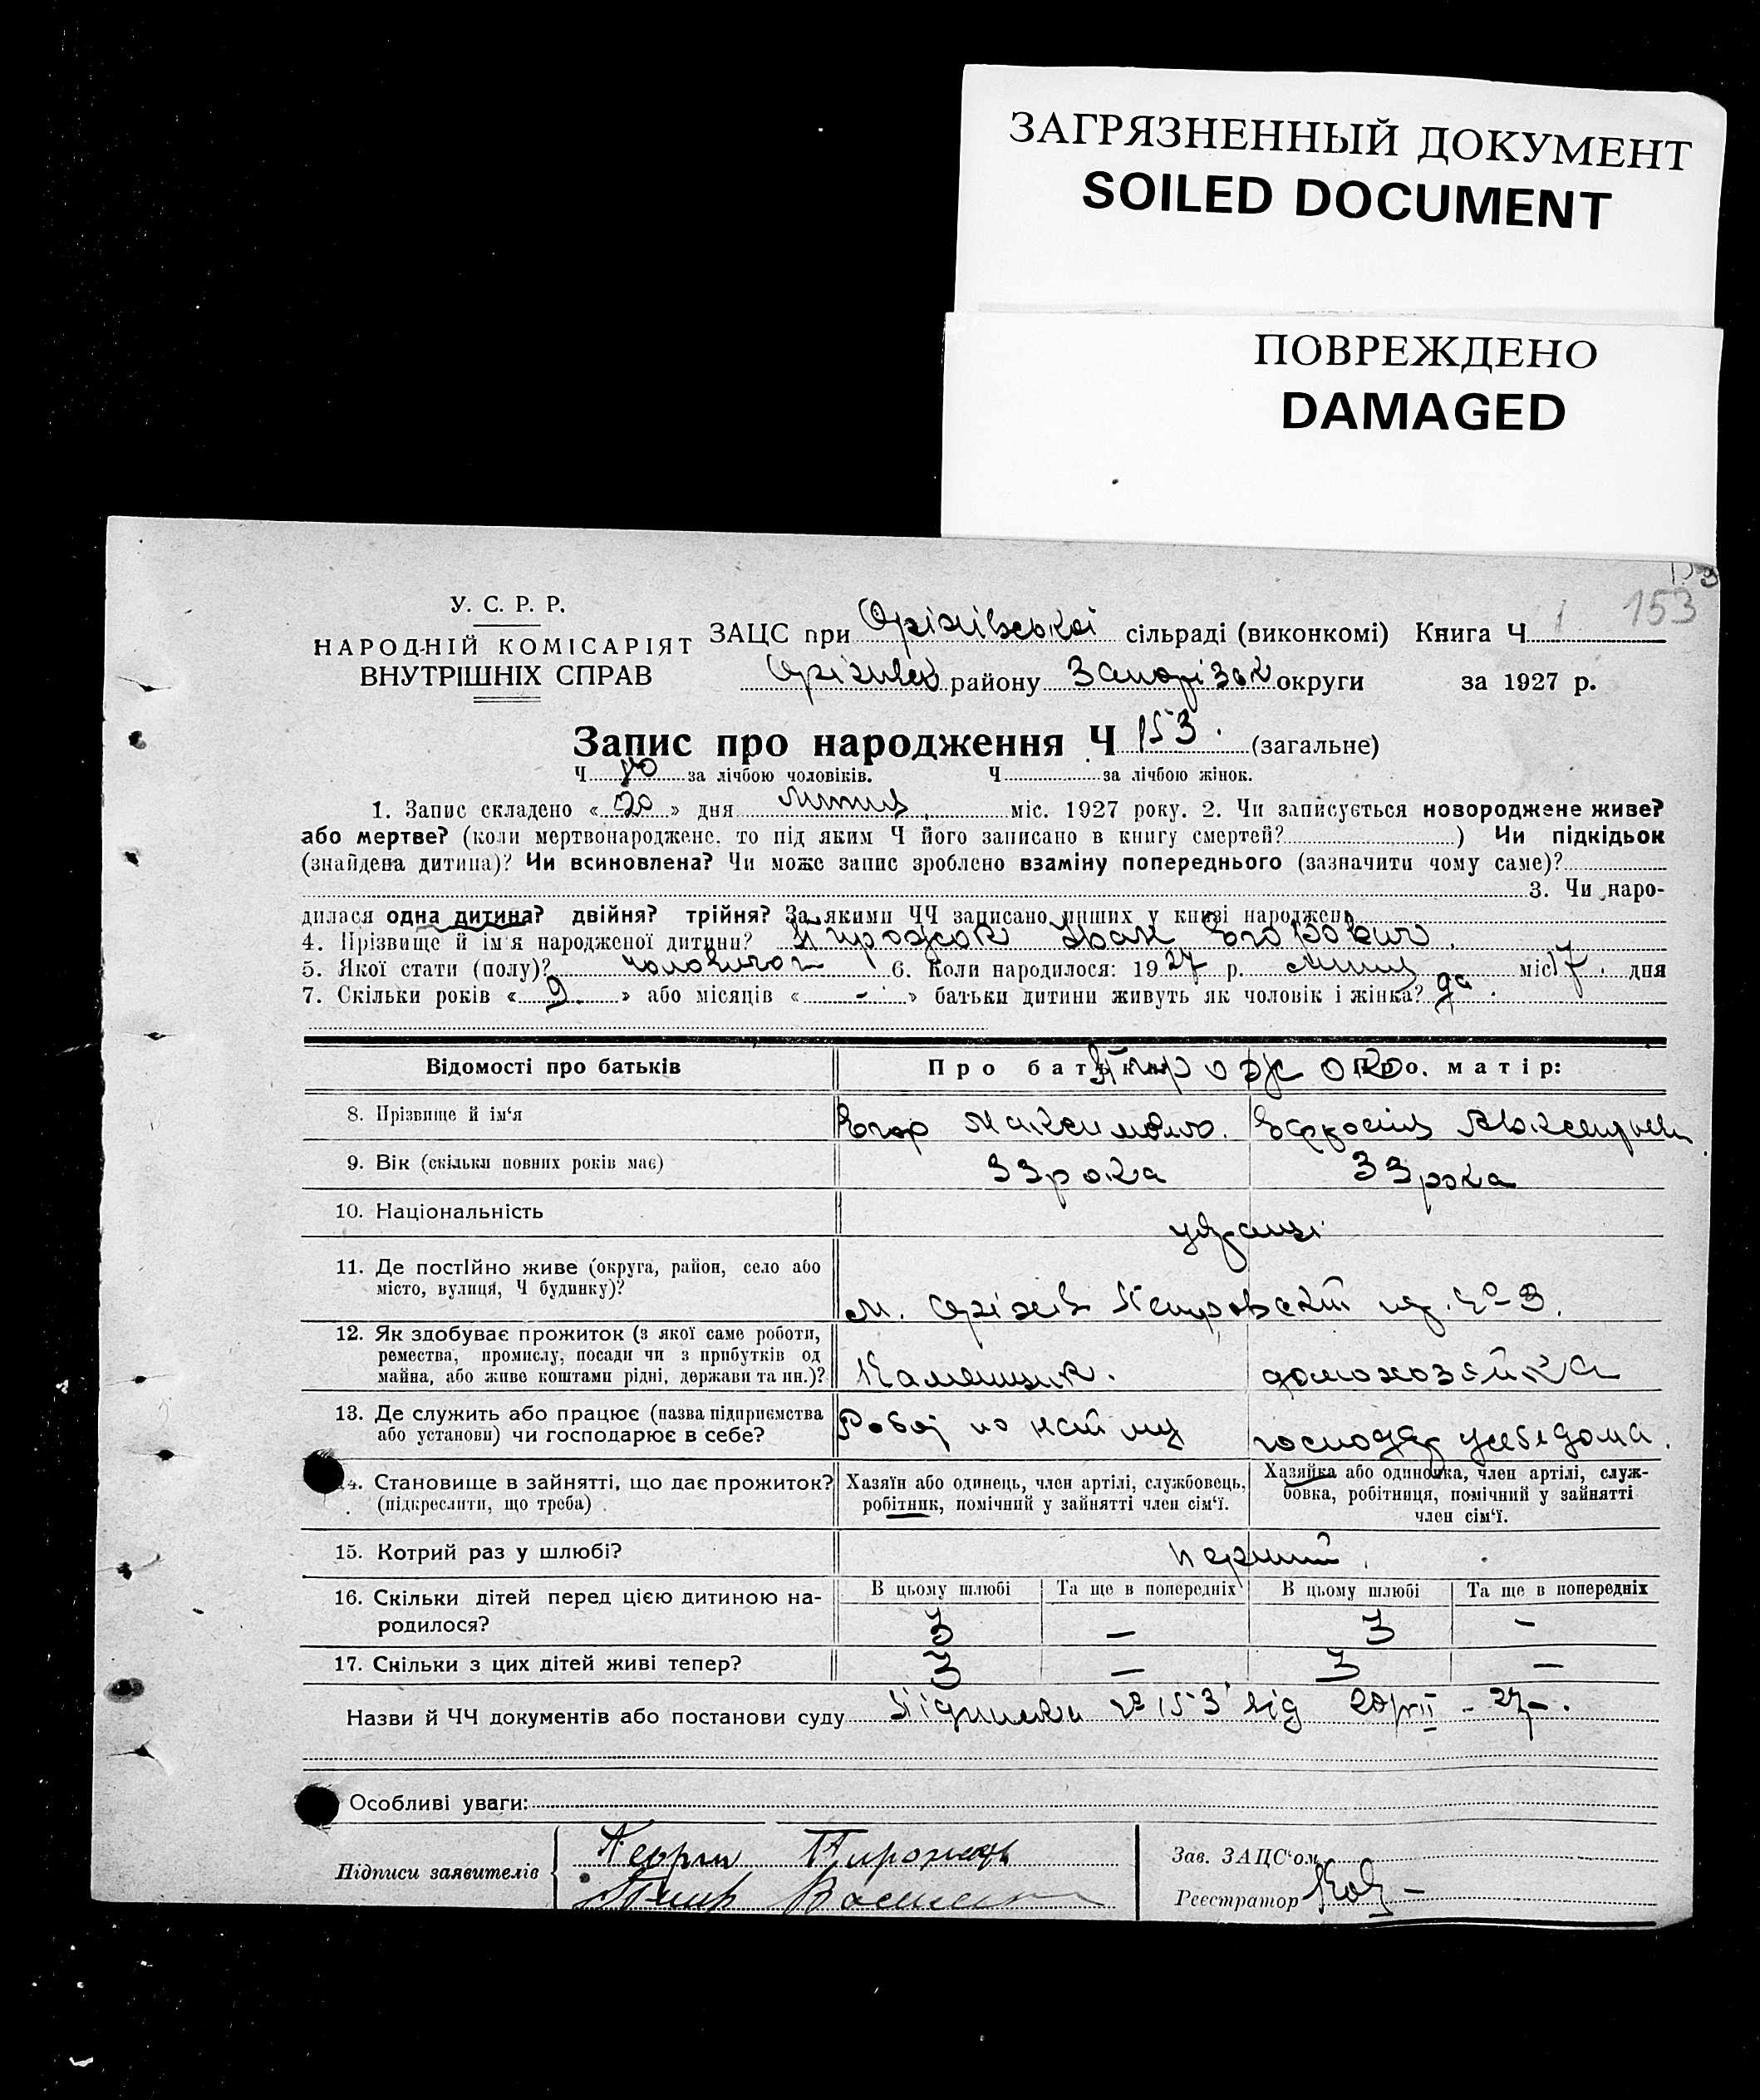 ЗАГРЯЗНЕННЫЙ ДОКУМЕНТ
SOILED DOCUMENT
ПОВРЕЖДЕНО
DAMAGED
153
У. С. Р. Р.
НАРОДНІЙ КОМІСАРІЯТ
ВНУТРІШНІХ СПРАВ
ЗАЦС при Оріхівської сільраді (виконкомі) Книга Ч 1
Оріхівск району Запорізок округи за 1927 р.
Запис про народження Ч 153. (загальне)
Ч 80 за лічбою чоловіків. Ч за лічбою жінок.
1. Запис складено « 20 » дня липця міс. 1927 року. 2. Чи записується новороджене живе?
або мертве? (коли мертвонароджене, то під яким Ч його записано в книгу смертей? ) Чи підкідьок
(знайдена дитина)? Чи всиновлена? Чи може запис зроблено взаміну попереднього (зазначити чому саме)?
3. Чи наро-
дилася одна дитина? двійня? трійня? За якими ЧЧ записано инших у книзі народжень
4. Прізвище й ім'я народженої дитини? Іван Егорович.
5. Якої стати (полу)? чоловічої 6. Коли народилося: 1927 р. липця міс 17. дня
7. Скільки років « 9 » або місяців « - » батьки дитини живуть як чоловік і жінка? да.
Відомості про батьків
Про батька: Про матір:
8. Прізвище й ім'я
Егор Максимович. Ефросинія
9. Вік (скільки повних років має)
33 рока 33 рока
10. Національність
українці
11. Де постійно живе (округа, район, село або
місто, вулиця, Ч будинку)?
м. Оріхів Петровской № 3.
12. Як здобуває прожиток (з якої саме роботи,
ремества, промислу, посади чи з прибутків од
майна, або живе коштами рідні, держави та ин.)?
Каменщик. домохозяйка
13. Де служить або працює (назва підприємства
або установи) чи господарює в себе?
Робоч по найму господар у себе дома.
14. Становище в зайнятті, що дає прожиток?
(підкреслити, що треба)
Хазяїн або одинець, член артілі, службовець,
робітник, помічний у зайнятті член сім'ї.
Хазяйка або одиночка, член артілі, служ-
бовка, робітниця, помічний у зайнятті
член сім'ї.
15. Котрий раз у шлюбі?
первий
В цьому шлюбі Та ще в попередніх В цьому шлюбі Та ще в попередніх
16. Скільки дітей перед цією дитиною на-
родилося?
3 – 3 –
17. Скільки з цих дітей живі тепер?
3 – 3 –
Назви й ЧЧ документів або постанови суду № 153 від 20/VII - 27-.
Особливі уваги:
Підписи заявителів
Георги
Зав. ЗАЦС'ом
Реєстратор